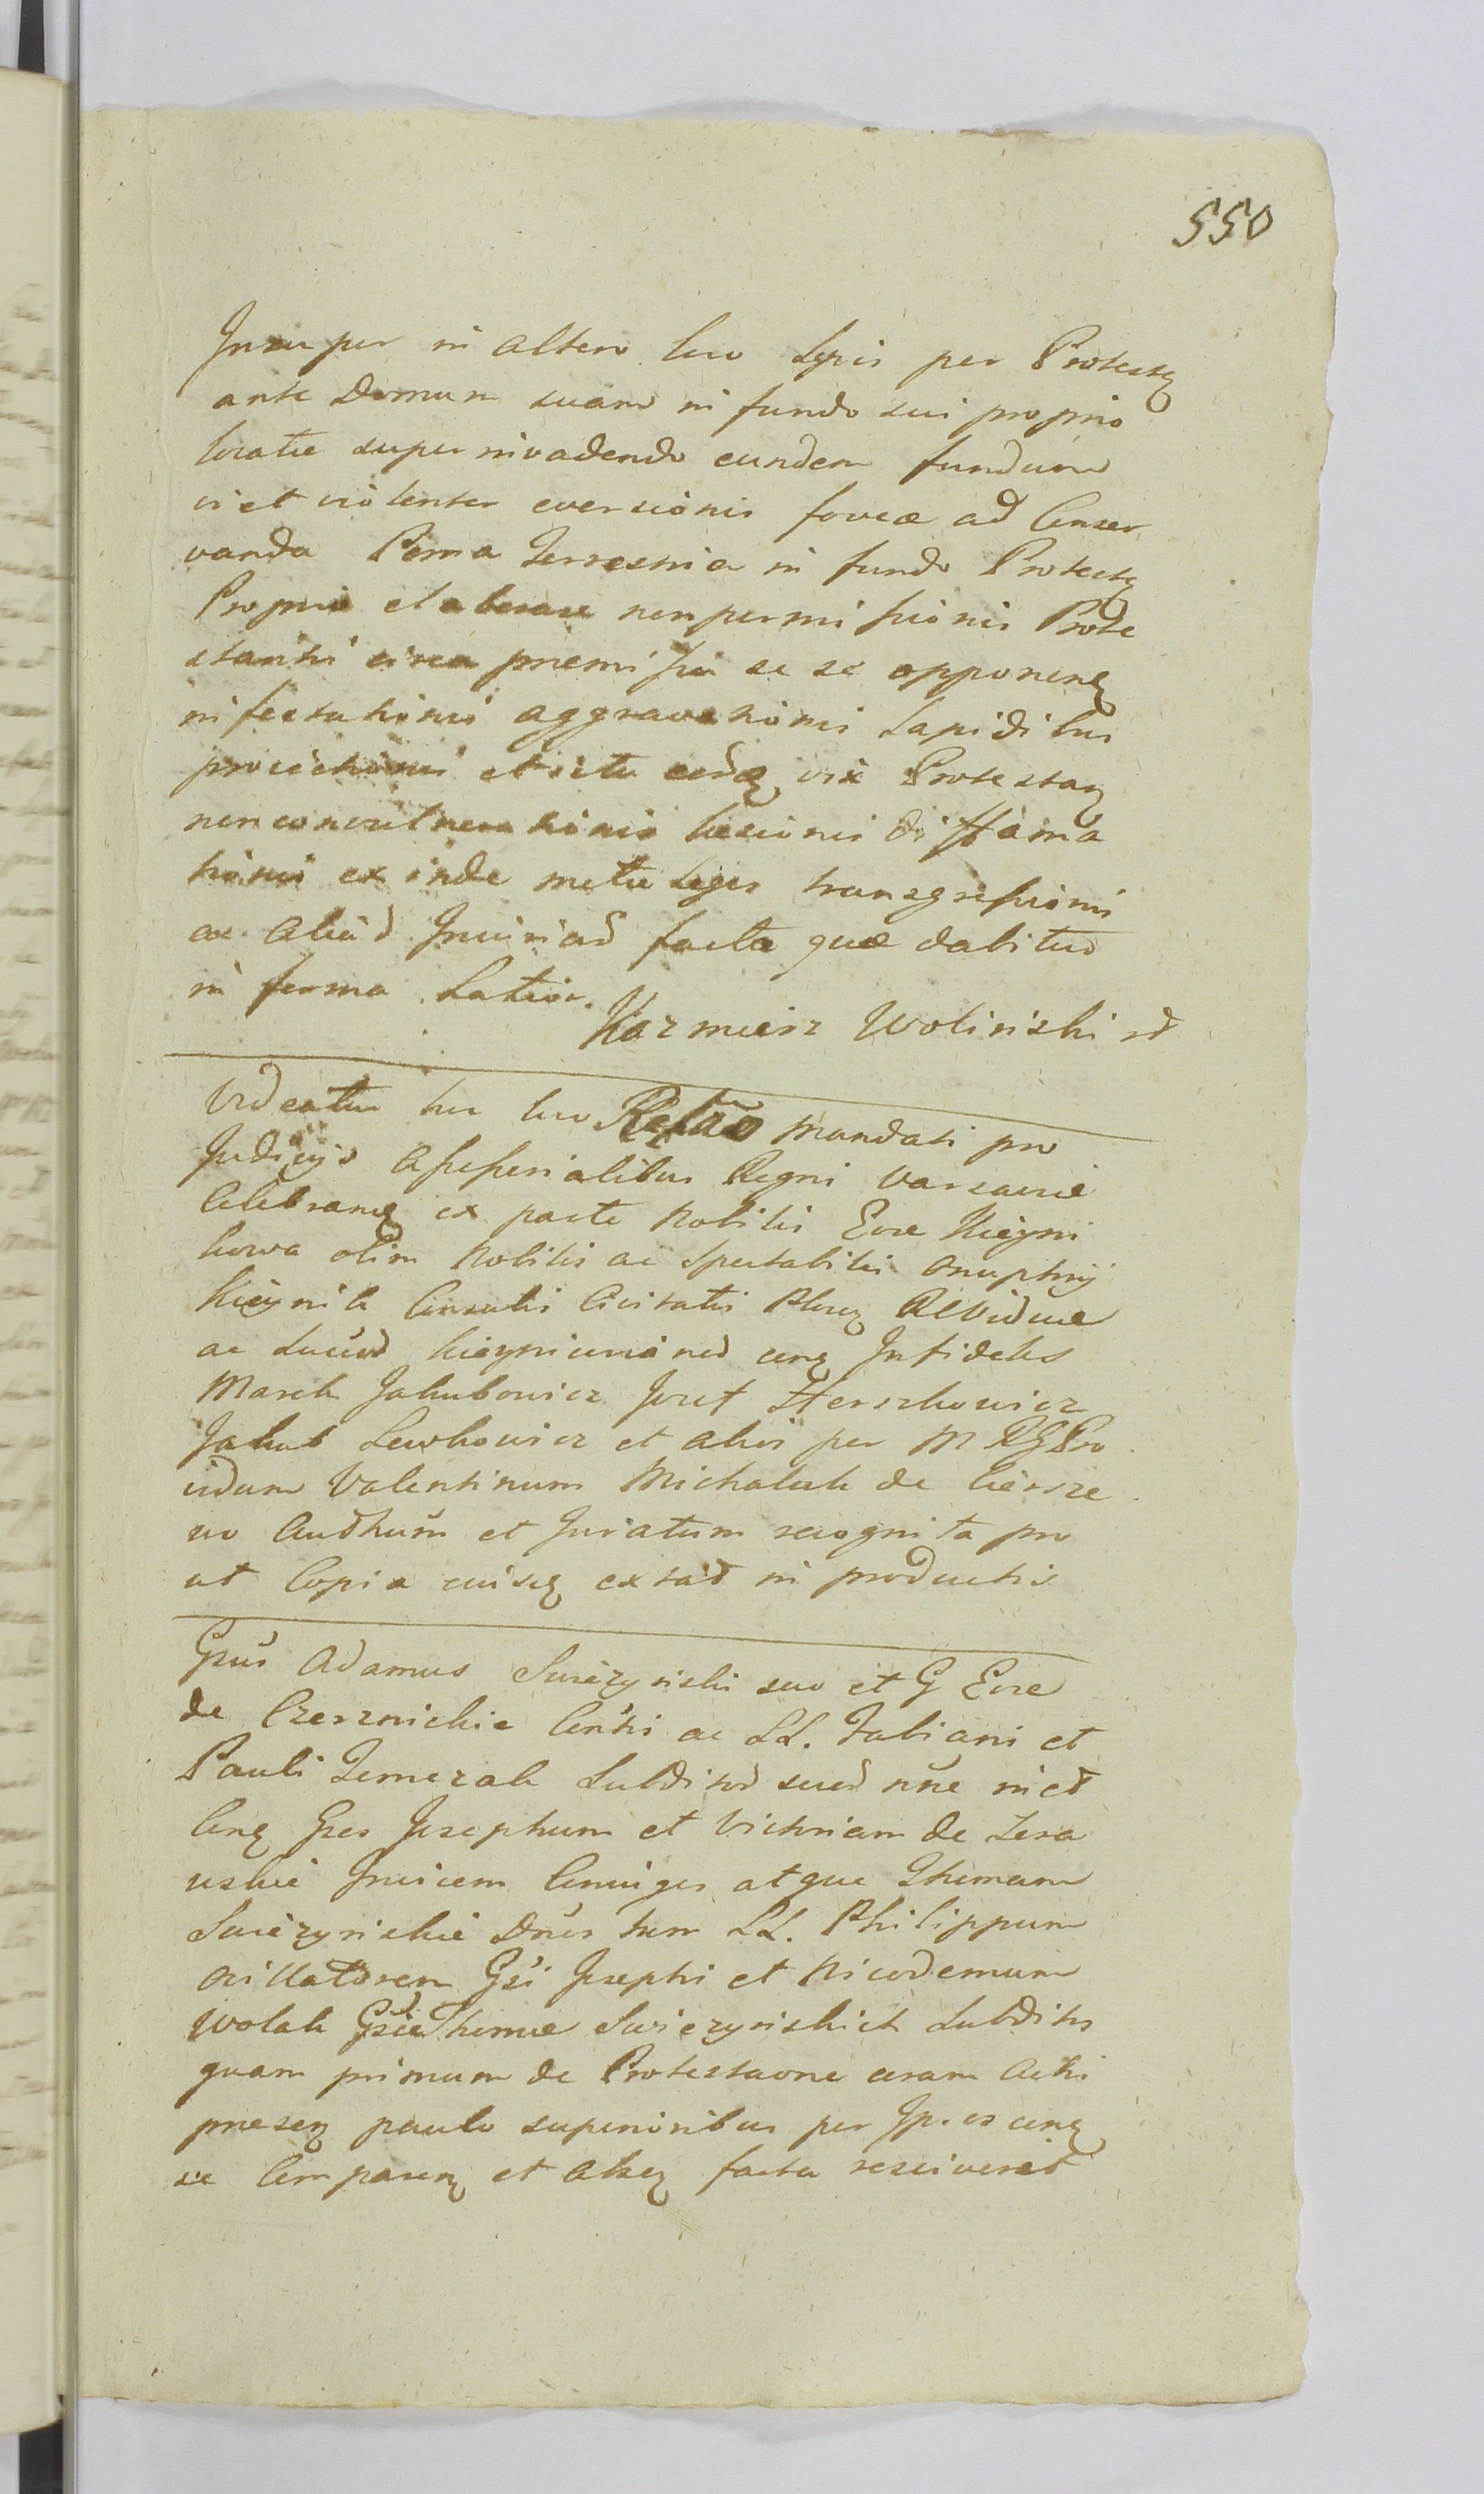 550
Insuper in altero loco Sepis per Protestq
ante Domum suam in fundo sui proprio
locatae super invadendo eundem fundum
vi et violenter eversionis foveae ad Conser
vanda Poma Terrestria in fundo Protestq
Proprio elaborare non permissionis Prote
stanti circa premissa se se opponenq
infestationis aggravationis Lapidibus
proiectionis et ictu eodq vix Protestaq
non convulnerationis laesionis diffama
tionis exinde metu Legis transgressionis
ac aliad Iniuriad facta quae dabitur
in forma Latior.
Kazmierz Wolinski
Videatur hic loco Relao mandati pro
Judicijs Assessorialibus Regni Varsaviae
Celebranq ex parte Nobilis Evae Kieyni
kowa olim Nobilis ac Spectabilis Onuphrij
Kieynik Consulis Civitatis Relviduae
ac conq Infideles
Marek Jakubowicz Jozef Herszkowicz
Jakub Lewkowicz et alios per M RG Pro
vidum Valentinum Michalak de
et Juratum recognita pro
ut Copia eiusq extad in productis
Gsus Adamus Swiezynski suo et G Evae
de Czerznickie Conthi ac LL. Fabiani et
Pauli Subditod suod nne
Conq Gsos Josephum et Victoriam de Zera
uskie Invicem Coniuges atque Thomam
Swiezynskie Dnos tum LL. Philippum
Gsi Josephi et Nicodemum
Wolak Gsi Thomae Swiezynskich Subditos
quam primum de Protestaone coram Actis
presenq paulo superioribus per Ipsos conq
se Comparenq et alioq facta resciverit